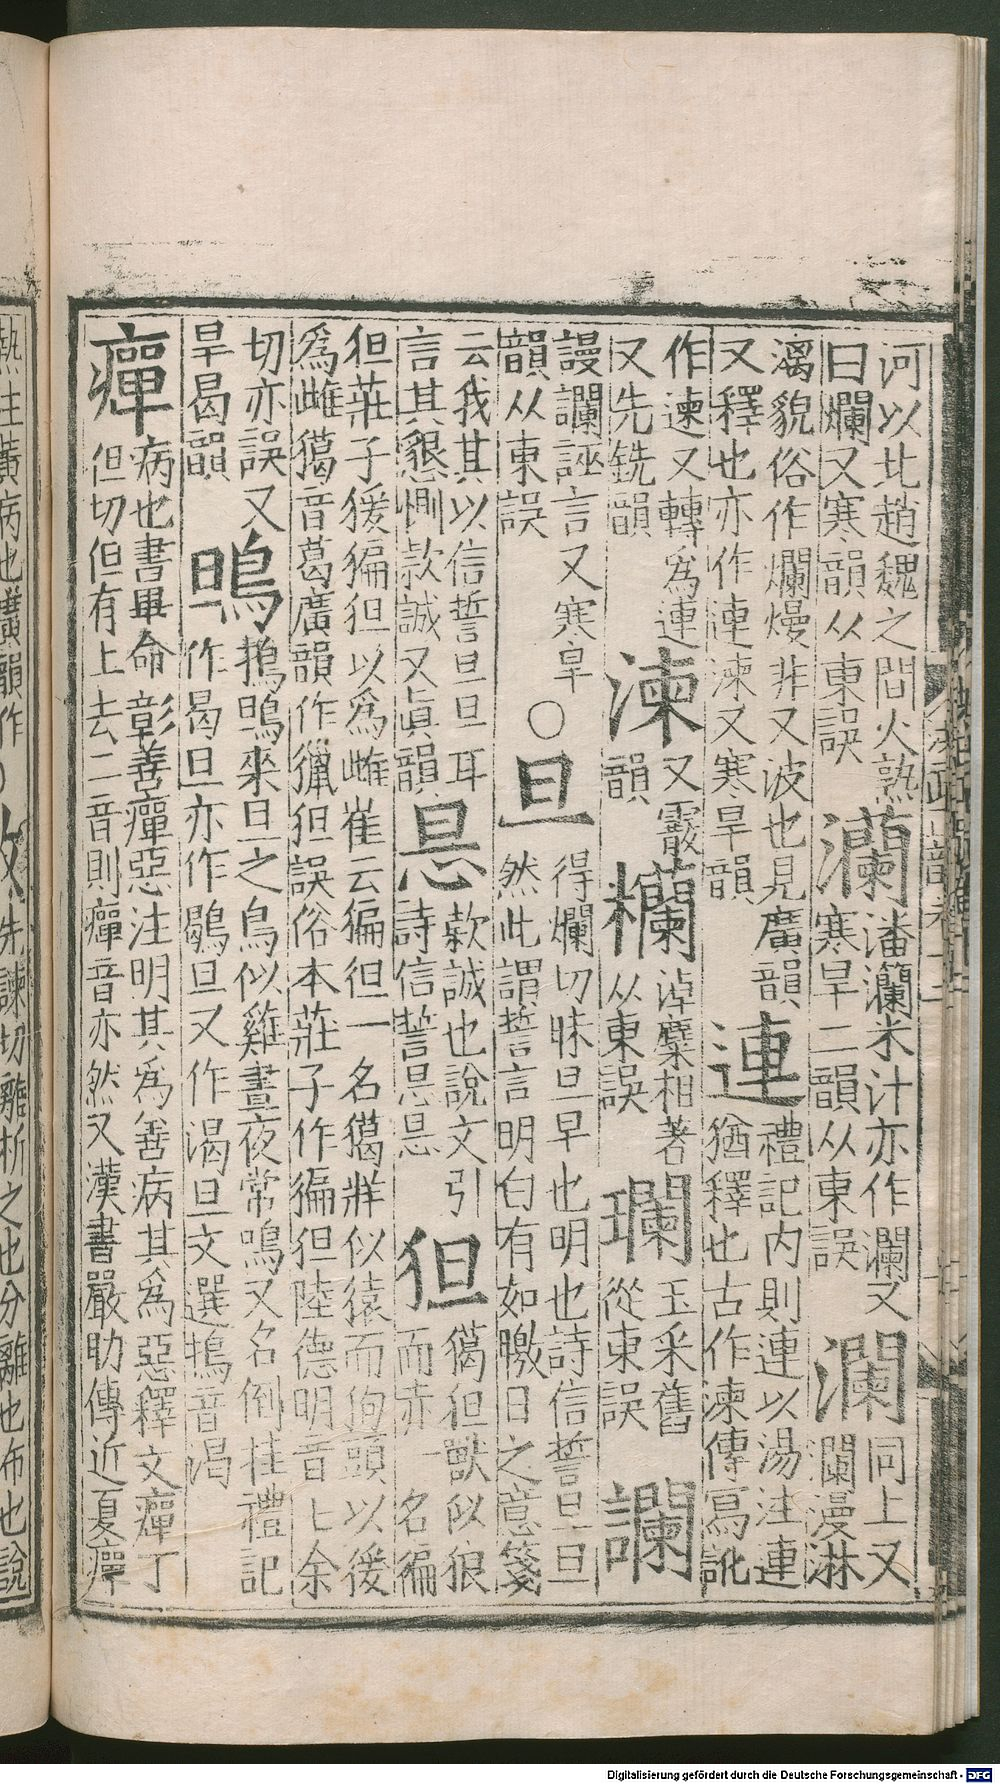 河以北趙魏之間火熟
曰爛又寒韻从東誤
瀾
潘瀾米汁亦作灡又
寒旱二韻从東誤
瀾
同上又
闌漫淋
漓貌俗作爛熳非又波也見廣韻
又釋也亦作連湅又寒旱韻
連
禮記内則連以湯注連
猶釋也古作湅傳寫訛
作諫又轉為連
又先銑韻
湅
又霰
韻
糷
淖糜相著
从東誤
瓓
玉采舊
從東誤
讕
謾讕誣言又寒旱
韻从東誤
〇
旦
得爛切昧旦早也明也詩信誓旦旦
然此謂誓言明白有如曒日之意箋
云我其以信誓旦旦耳
言其懇惻款誠又真韻
悬
款誠也說文引
詩信誓悬悬
狚
獦狚獸似狼
而赤一名猵
狚莊子猨猵狚以為雌崔云猵狚一名獦牂似猿而狗頭以猨
為雌獦音葛廣韻作獵狚誤俗本莊子作猵狚陸德明音七余
切亦誤又
旱曷韻
鴠
鶷鴠來旦之鳥似雞晝夜常鳴又名倒挂禮記
作曷旦亦作鶡旦又作渴旦文選鶷音渴
癉
病也書畢命彰善癉惡注明其為善病其為惡釋文癉丁
但切但有上去二音則癉音亦然又漢書嚴助傳近夏癉
熱注黃病也廣韻作
〇
先諫切離析之也分離也布也說
Digitalisierung gefördert durch die Deutsche Forschungsgemeinschaft - DFG